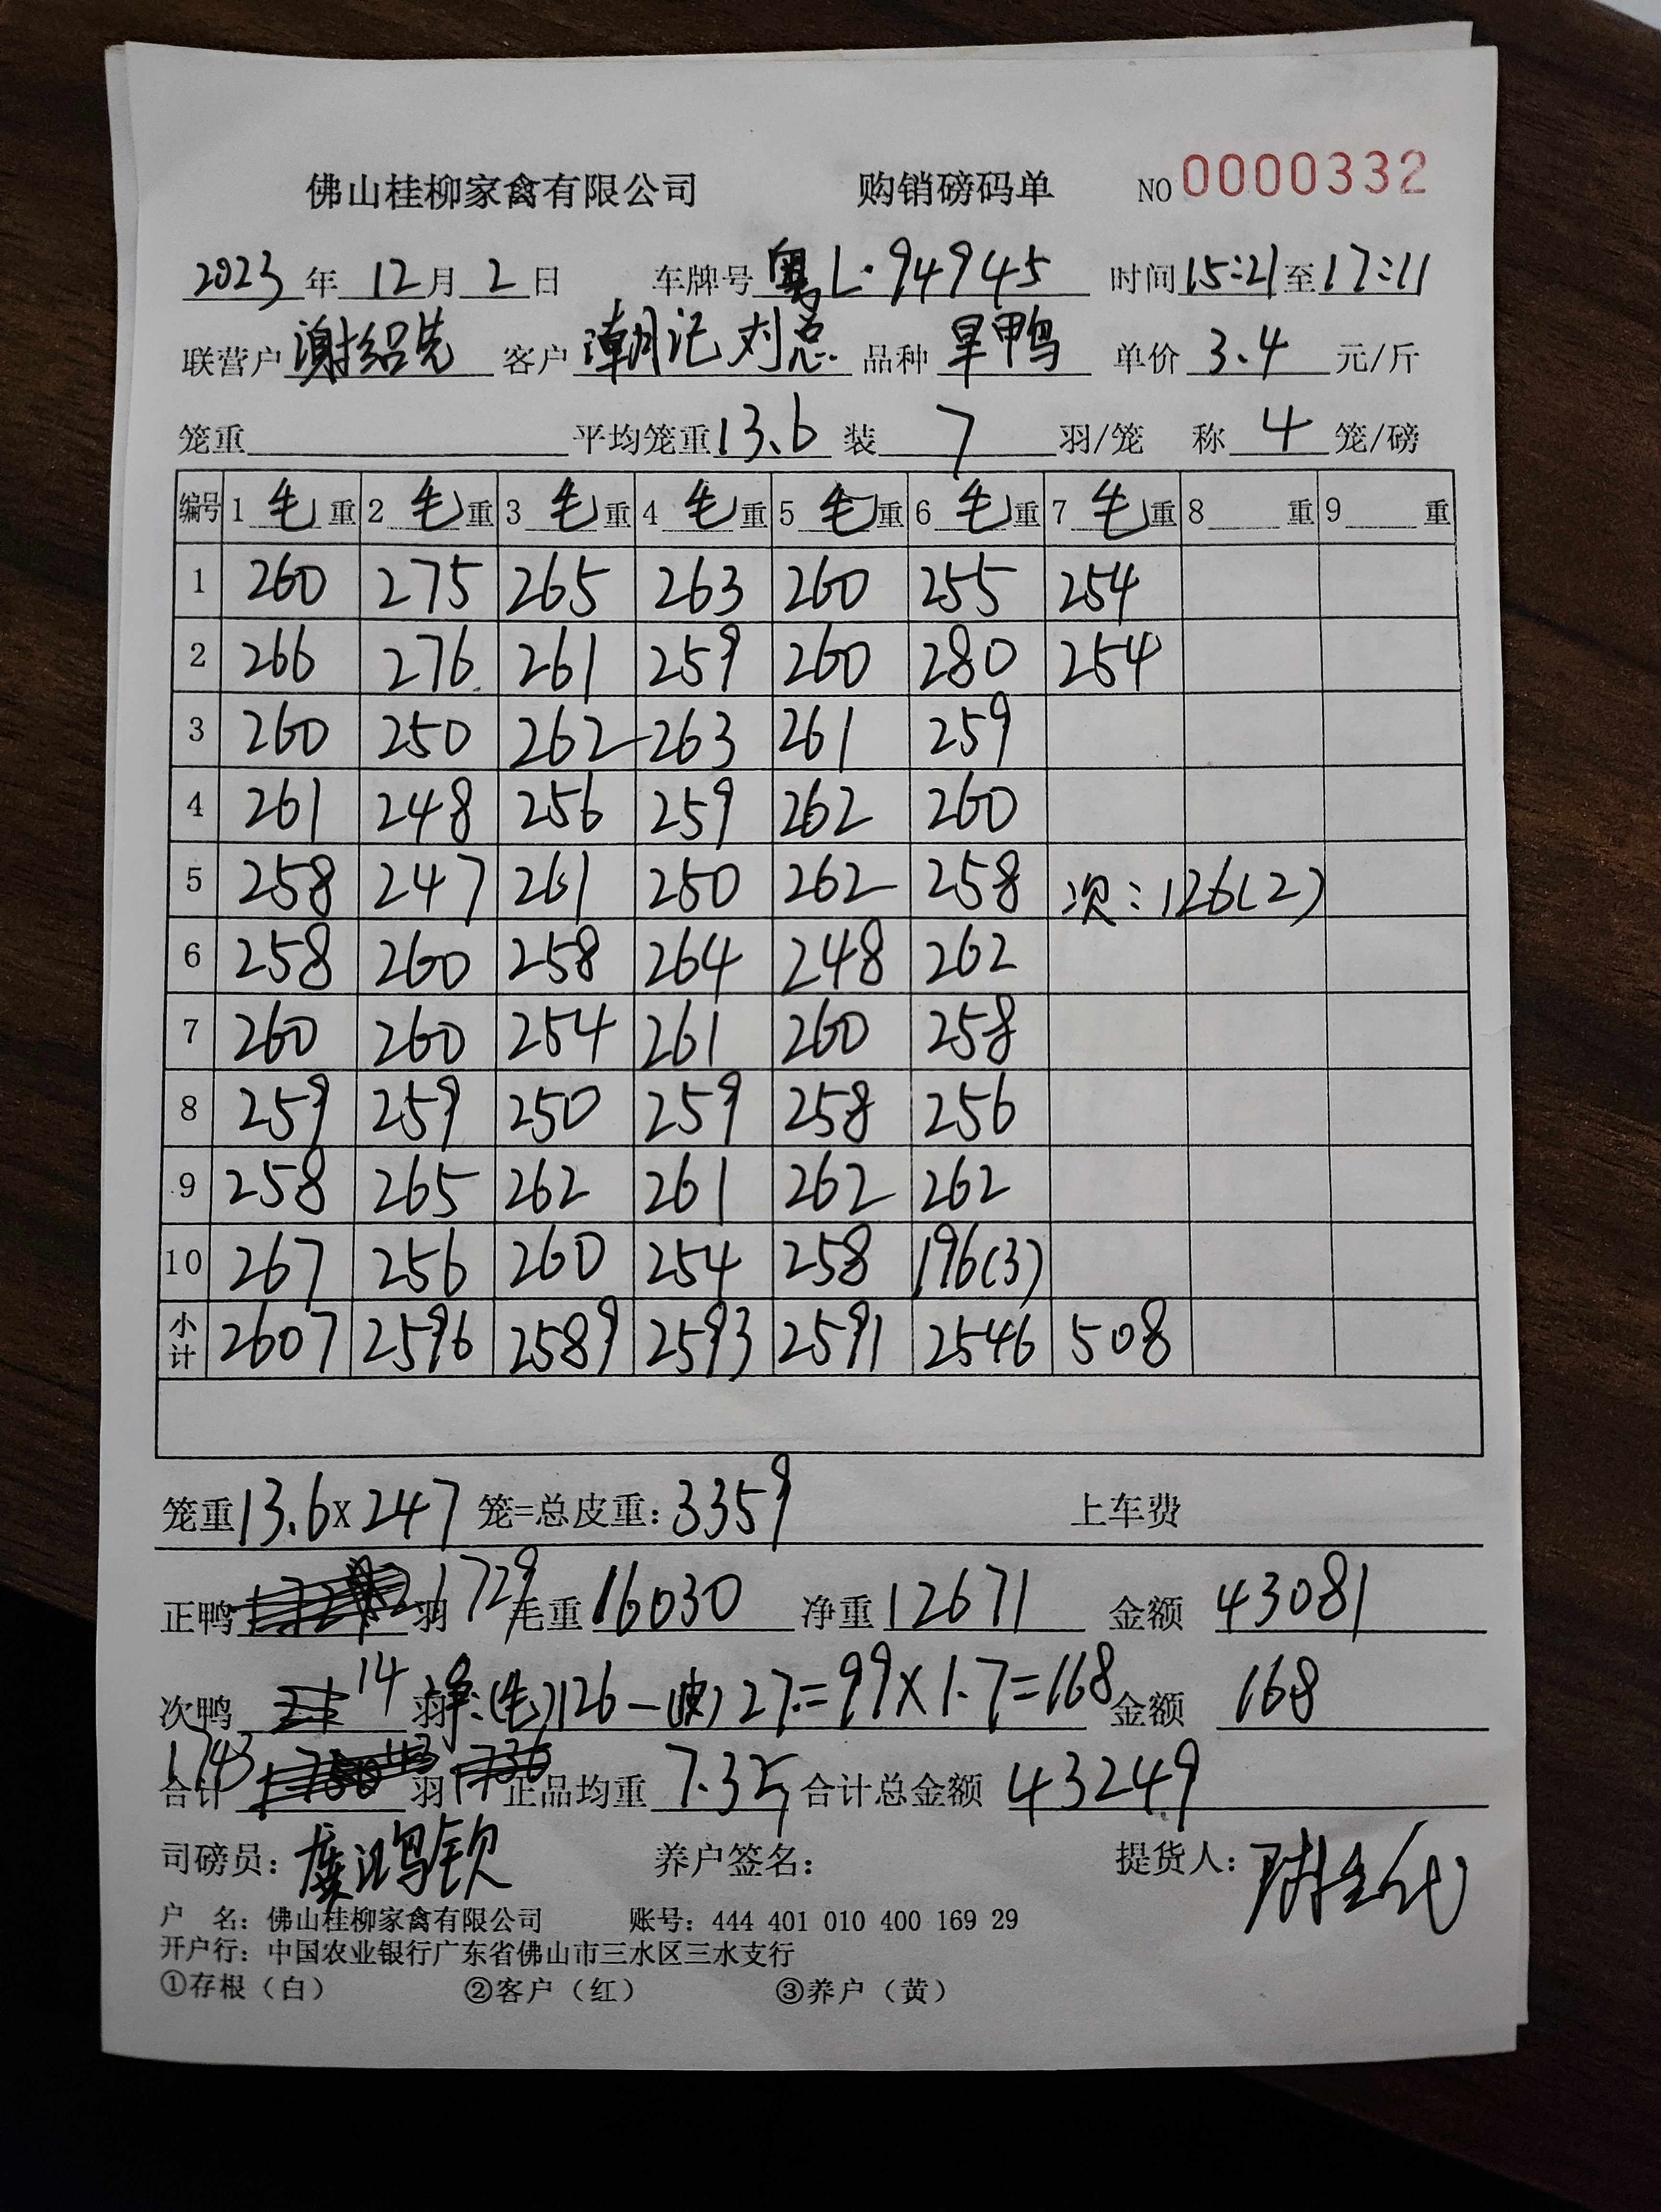 佛山桂柳家禽有限公司 购销磅码单 NO 0000332
2023年12月2日 车牌号 粤L·94945 时间15:21至17:11
联营户 谢绍先 客户 潮记刘总 品种 旱鸭 单价 3.4 元/斤
笼重 平均笼重13.6 装 7 羽/笼 称 4 笼/磅
编号 1毛重 2毛重 3毛重 4毛重 5毛重 6毛重 7毛重 8重 9重
1 260 275 265 263 260 255 254
2 266 276 261 259 260 280 254
3 260 250 262 263 261 259
4 261 248 256 259 262 260
5 258 247 261 250 262 258 次:126(2)
6 258 260 258 264 248 262
7 260 260 254 261 260 258
8 259 259 250 259 258 256
9 258 265 262 261 262 262
10 267 256 260 254 258 196(3)
小计 2607 2596 2589 2593 2591 2546 508
笼重13.6x247 笼=总皮重:3359 上车费
正鸭 羽1729 毛重16030 净重12671 金额 43081
次鸭 14 羽 净:(毛)126-(皮)27=99x1.7=168 金额 168
合计 1743 羽 正品均重 7.35 合计总金额 43249
司磅员: 养户签名: 提货人:
户 名:佛山桂柳家禽有限公司 账号:444 401 010 400 169 29
开户行:中国农业银行广东省佛山市三水区三水支行
①存根(白) ②客户(红) ③养户(黄)